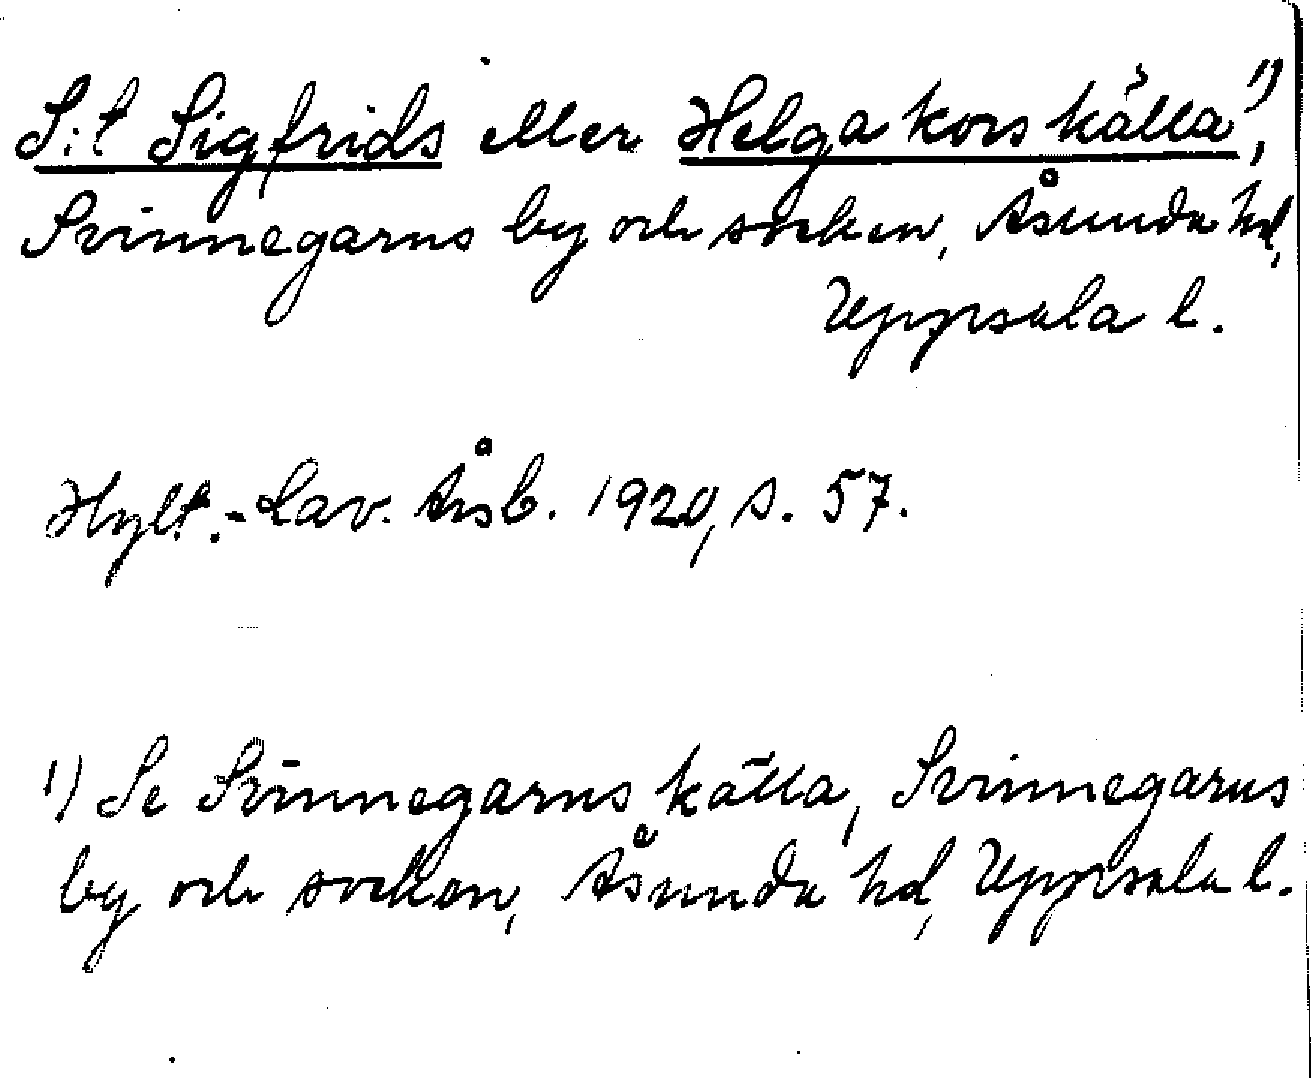 S:t Sigfrids eller Helga kors källa¹⁾,
Svinnegarns by och socken, Åsunda hd,
Uppsala l.
Hylt.-Cav. Årsb. 1920, s. 57.
¹⁾ Se Svinnegarns källa, Svinnegarns
by och socken, Åsunda hd, Uppsala l.